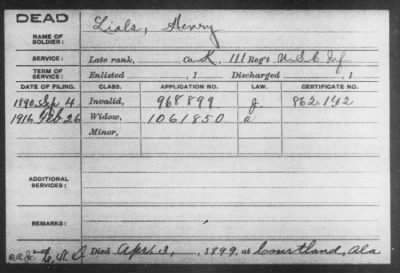 DEAD
NAME OF SOLDIER: Lials, Henry
SERVICE: Late rank, Co. K, 111 Reg't U.S.C. Inf
TERM OF SERVICE: Enlisted , 1 Discharged , 1
DATE OF FILING. CLASS. APPLICATION NO. LAW. CERTIFICATE NO.
1890, Sp 4 Invalid, 968899 J 862.142
1916, Feb 26 Widow, 1061850 a
Minor,
ADDITIONAL SERVICES:
REMARKS:
Died Apr. 3, , 1899, at Courtland, Ala